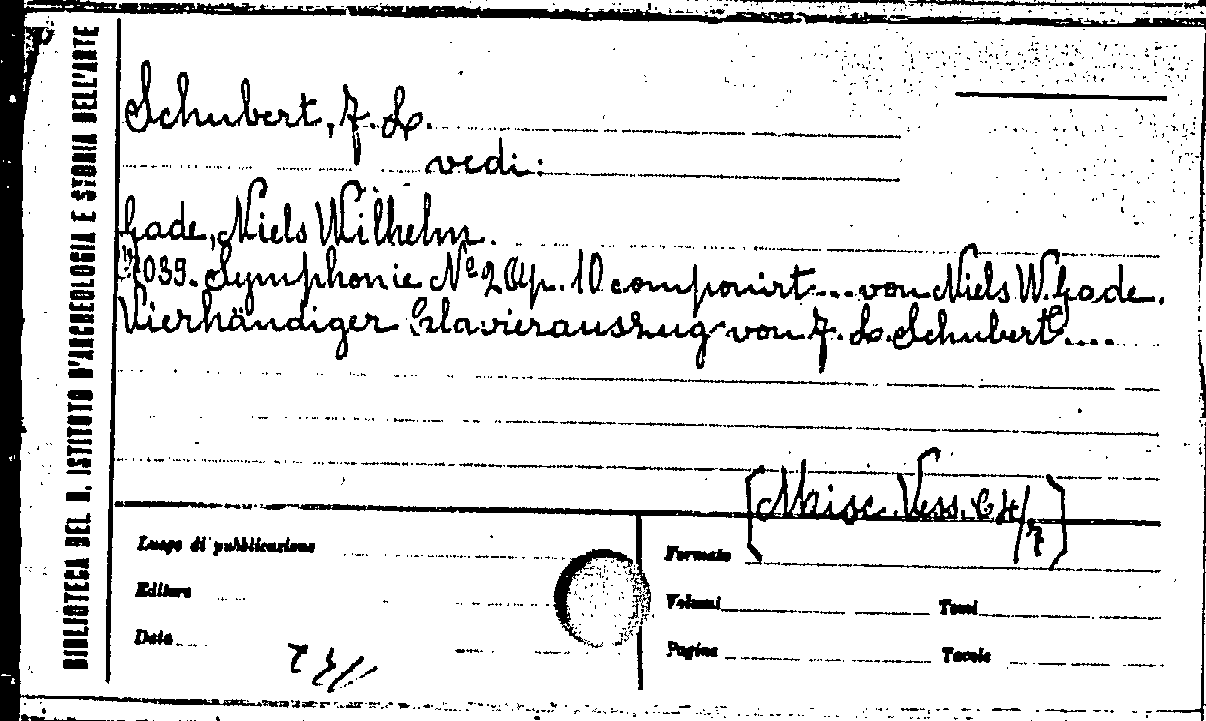 BIBLIOTECA DEL R. ISTITUTO D'ARCHEOLOGIA E STORIA DELL'ARTE
Schubert, F. L.
vedi:
Gade, Niels Wilhelm.
039. Symphonie Nº 2 Op. 10 componirt... von Niels W. Gade.
Vierhändiger Clavierauszug von F. L. Schubert....
[Misc. Vess.
Luogo di pubblicazione
Formato
Editore
Volumi
Tomi
Data
Pagine
Tavole